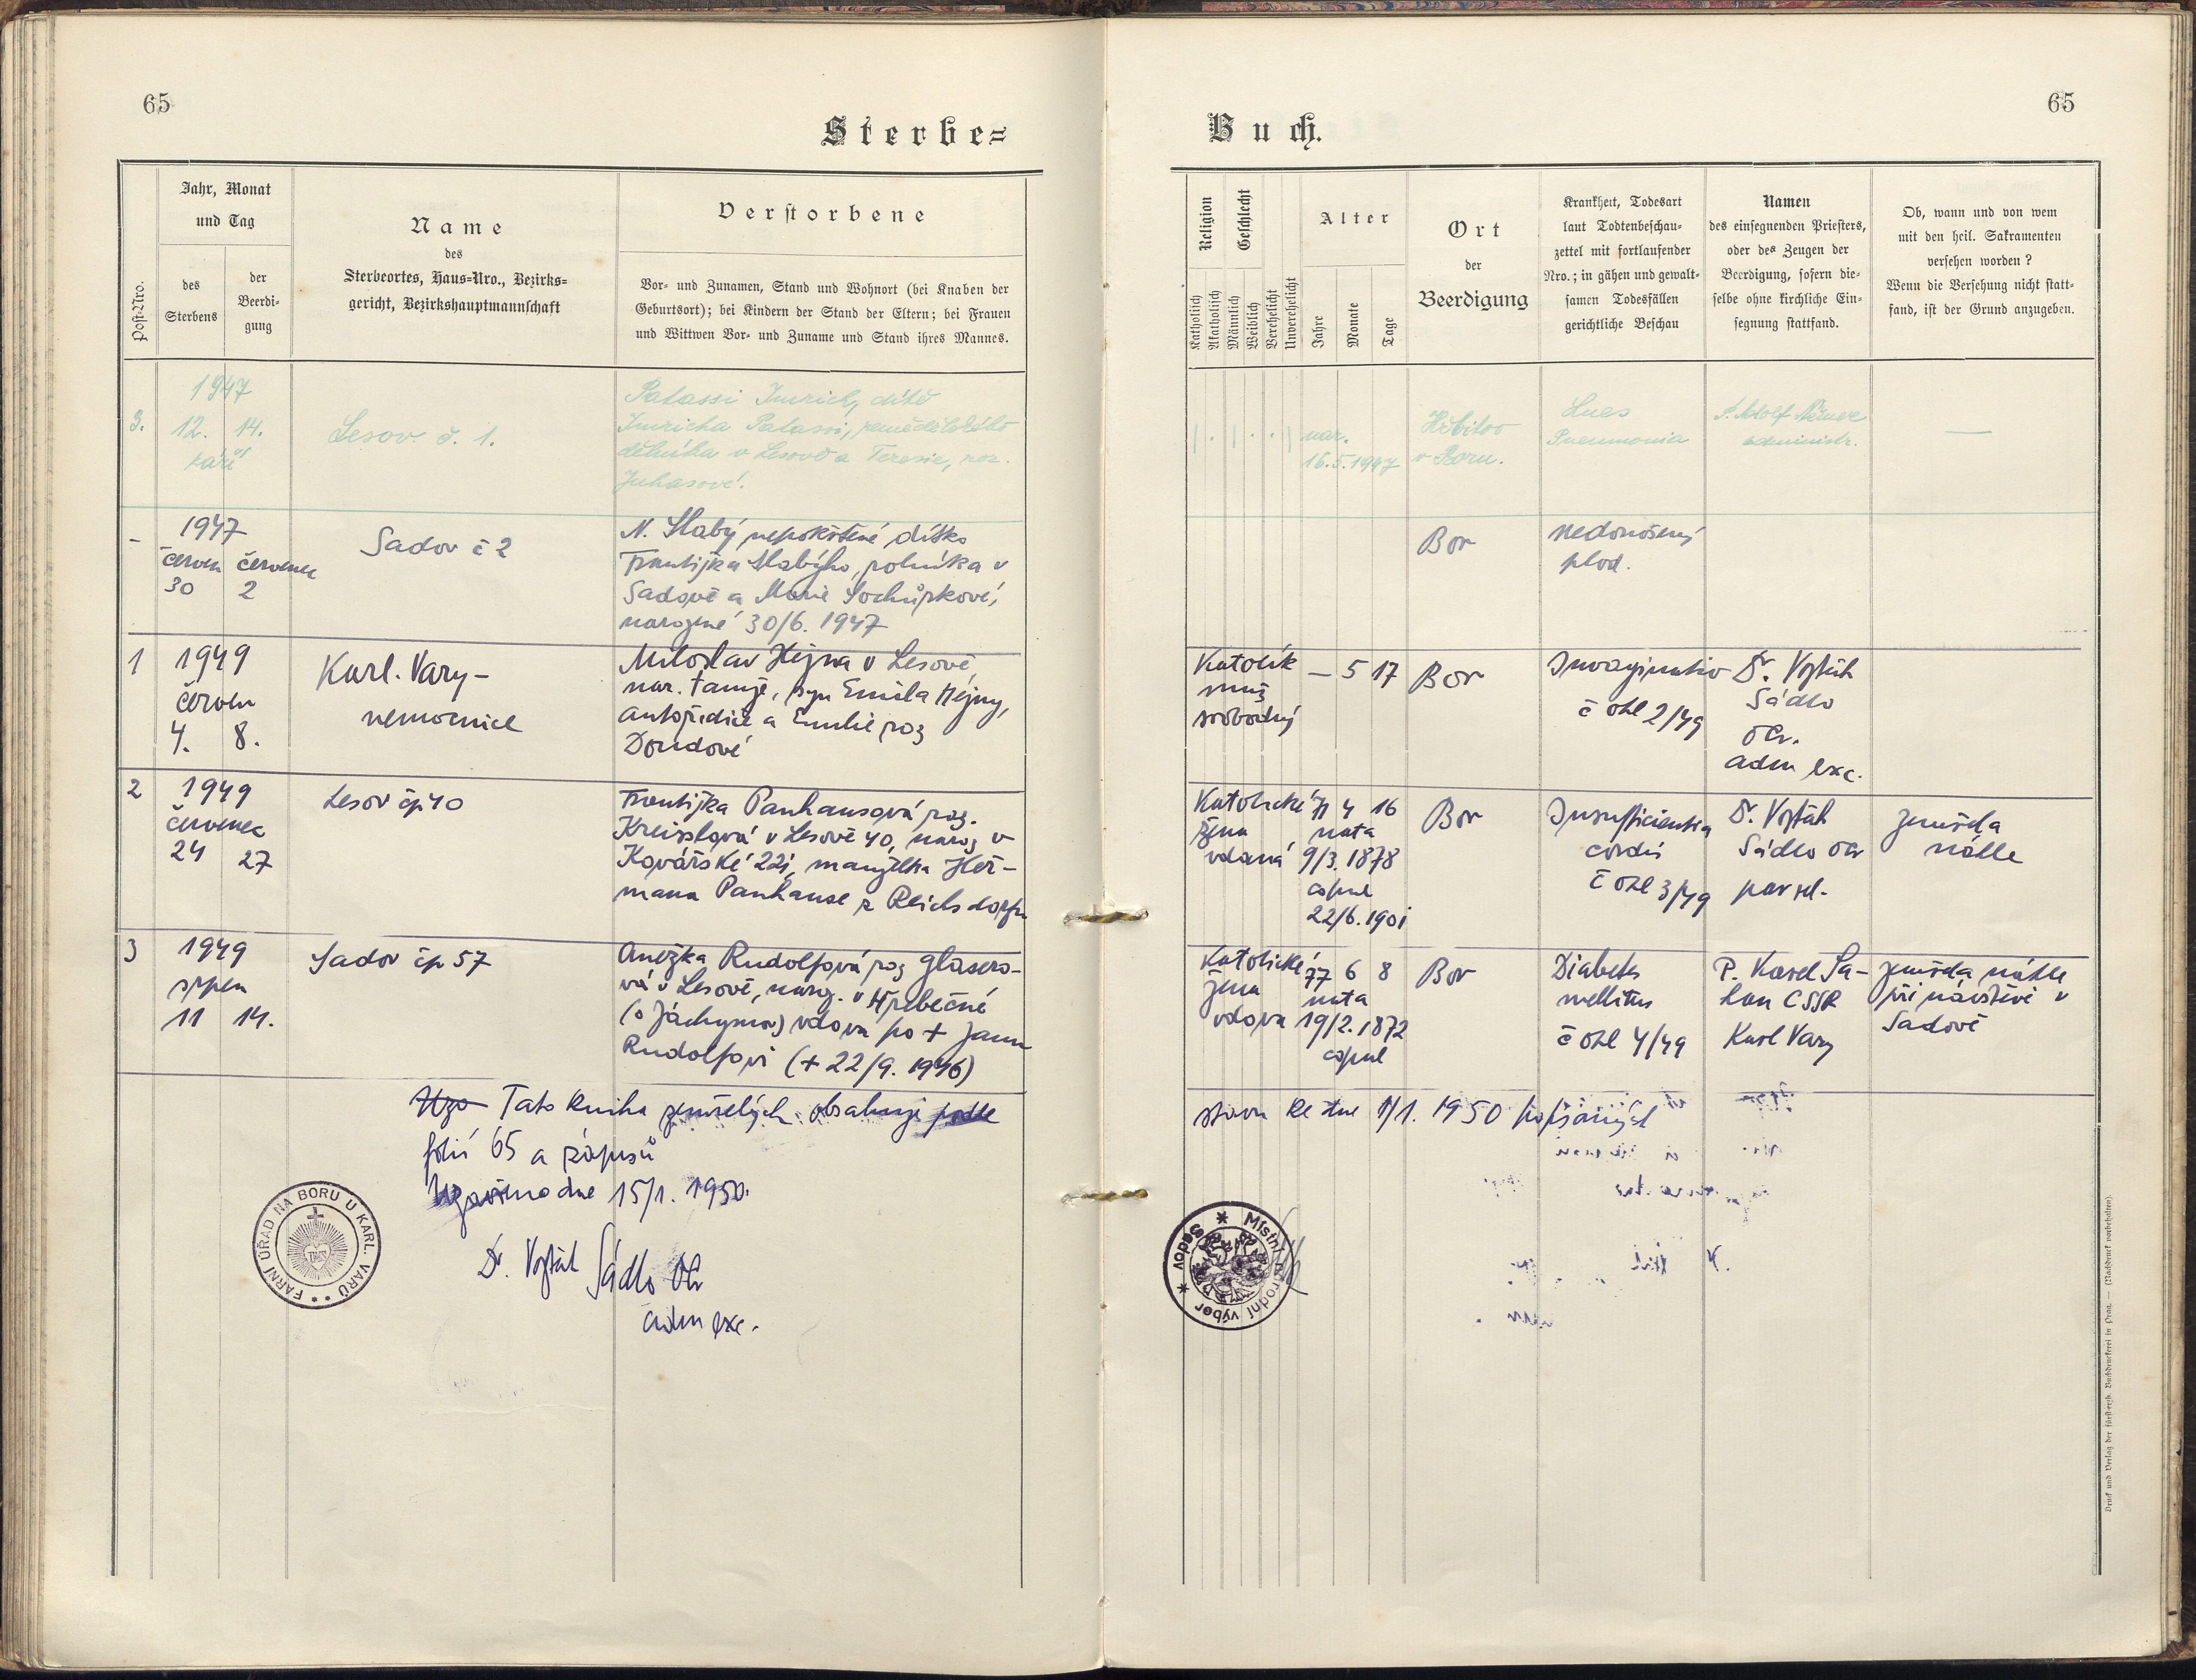 65
Sterbe=
Jahr, Monat
und Tag
Post-Nro.
des
Sterbens
der
Beerdi-
gung
Name
des
Sterbeortes, Haus=Nro., Bezirks=
gericht, Bezirkshauptmannschaft
Verstorbene
Vor- und Zunamen, Stand und Wohnort (bei Knaben der
Geburtsort); bei Kindern der Stand der Eltern; bei Frauen
und Wittwen Vor- und Zuname und Stand ihres Mannes.
3.
1947
12. 14.
září
Lesov č. 1.
Palassi Imrich, dítě
Imricha Palassi, zemědělského
dělníka v Lesově a Terezie, roz.
Juhasové.
-
1947
červen červenec
30 2
Sadov č 2
N. Slabý nepokřtěné dítko
Františka Slabýho, rolníka v
Sadově a Marie Sochůrkové,
narozené 30/6. 1947
1
1949
červen
4. 8.
Karl. Vary -
nemocnice
Miloslav Hejna v Lesově,
nar. tamže, syn Emila Hejny,
autořidiče a Emilie roz
Doudové
2
1949
červenec
24 27
Lesov čp 40
Františka Panhansová roz.
Kreisslová v Lesově 40, naroz v
Kovářské 221, manželka Heř-
mana Panhanse z Reichsdorfu
3
1949
srpen
11 14.
Sadov čp 57
Anežka Rudolfová roz Glasero-
vá v Lesově, naroz. v Hřebečné
(o Jáchymov) vdova po + Janu
Rudolfovi (+ 22/9. 1946)
Uza Tato kniha zemřelých obsahuje podle
folií 65 a zápisů
Uzavřeno dne 15/1. 1950.
Dr. Vojtěch Sádlo OCr
adm exc.
FARNÍ ÚŘAD NA BORU U KARL. VARŮ
65
Buch.
Religion
Geschlecht
Katholisch
Akatholisch
Männlich
Weiblich
Verehelicht
Unverehelicht
Alter
Jahre
Monate
Tage
Ort
der
Beerdigung
Krankheit, Todesart
laut Todtenbeschau-
zettel mit fortlaufender
Nro.; in gähen und gewalt-
samen Todesfällen
gerichtliche Beschau
Namen
des einsegnenden Priesters,
oder des Zeugen der
Beerdigung, sofern die-
selbe ohne kirchliche Ein-
segnung stattfand.
Ob, wann und von wem
mit den heil. Sakramenten
versehen worden?
Wenn die Versehung nicht statt-
fand, ist der Grund anzugeben.
nar.
16.5.1947
Hřbitov
v Boru.
Lues
Pneumonia
P. Adolf Němec
administr.
—
Bor
nedonošený
plod.
Katolík
muž
svobodný
— 5 17
Bor
Invaginatio
č ohl 2/49
Dr. Vojtěch
Sádlo
OCr.
adm exc.
Katolické
žena
vdaná
71 4 16
nata
9/3. 1878
copul
22/6. 1901
Bor
Insufficientia
cordis
č ohl 3/49
Dr. Vojtěch
Sádlo OCr
zemřela
náhle
Katolické
žena
vdova
77 6 8
nata
19/2. 1872
copul
Bor
Diabetes
mellitus
č ohl 4/49
P. Karel Sa-
han CSSR
Karl Vary
zemřela náhle
při návštěvě v
Sadově
stavu ke dne 1/1. 1950 popsaných
Místní národní výbor Sadov
Druck und Verlag der fürst-erzb. Buchdruckerei in Prag. — (Nachdruck vorbehalten).